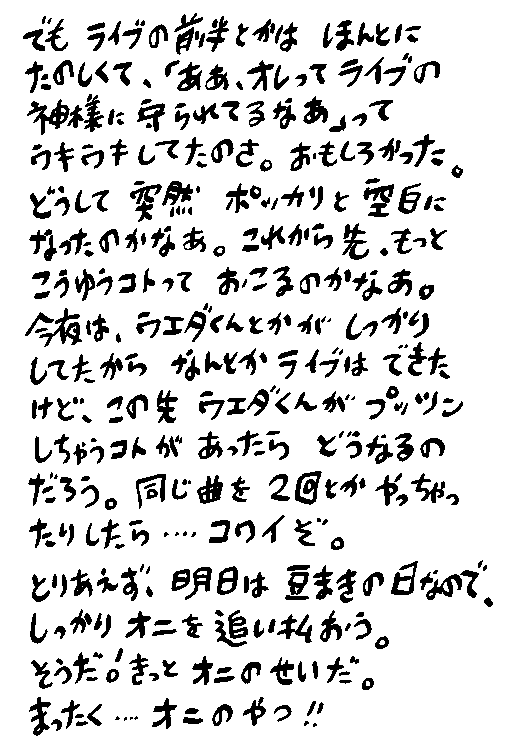 でも ライブの前半とかは ほんとに
たのしくて、「ああ、オレってライブの
神様に守られてるなあ」って
ウキウキしてたのさ。おもしろかった。
どうして 突然 ポッカリと空白に
なったのかなあ。これから先、もっと
こうゆうコトって おこるのかなあ。
今夜は、ウエダくんとかが しっかり
してたから なんとかライブは できた
けど、この先 ウエダくんが プッツン
しちゃうコトが あったら どうなるの
だろう。同じ曲を 2回とか やっちゃっ
たりしたら‥‥コワイぞ。
とりあえず、明日は 豆まきの日なので、
しっかり オニを 追い払おう。
そうだ!きっと オニのせいだ。
まったく‥‥オニのやつ!!